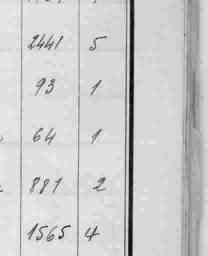 2441 5
93 1
64 1
881 2
1565 4